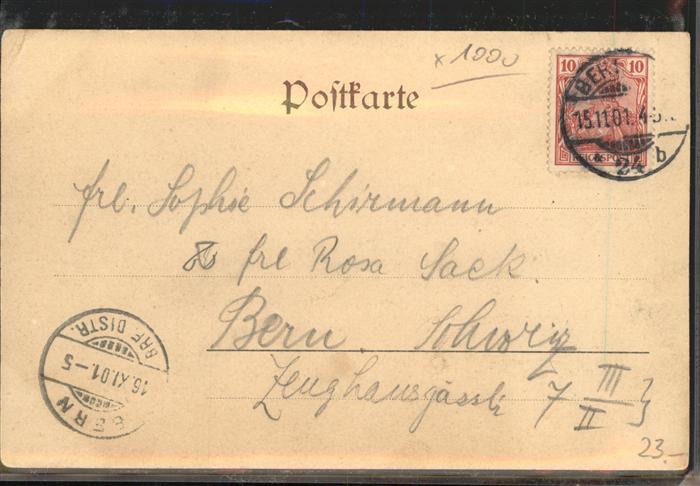 x 1990
Postkarte
10 10
REICHSPOST
BERL
15.11.01. 4-5
24 b
frl. Sophie Schirmann
frl Rosa Sack.
Bern. Schweiz
Zeughausgässli 7 III
II
BRF. DISTR.
16.XI.01.-5
BERN
23.-